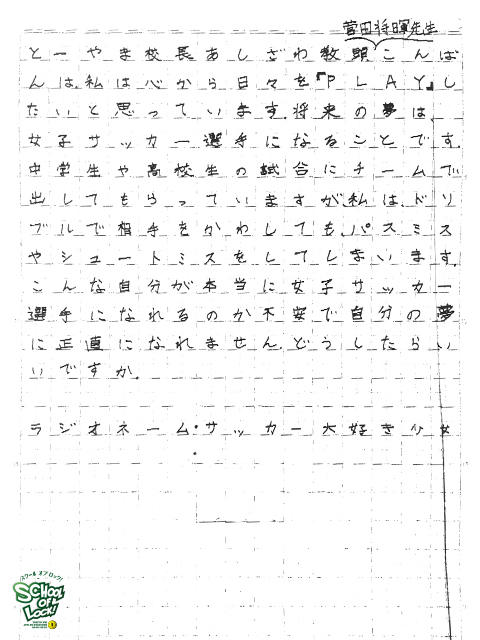 菅田将暉先生
とーやま校長あしざわ教頭こんば
んは.私は心から日々を『PLAY』し
たいと思っています.将来の夢は、
女子サッカー選手になることです.
中学生や高校生の試合にチームで
出してもらっていますが、私は、ドリ
ブルで相手をかわしても、パスミス
やシュートミスをしてしまいます.
こんな自分が本当に女子サッカー
選手になれるのか不安で自分の夢
に正直になれません.どうしたらい
いですか.
ラジオネーム・サッカー大好き少女
スクール オブ ロック!
SCHOOL OF LOCK!